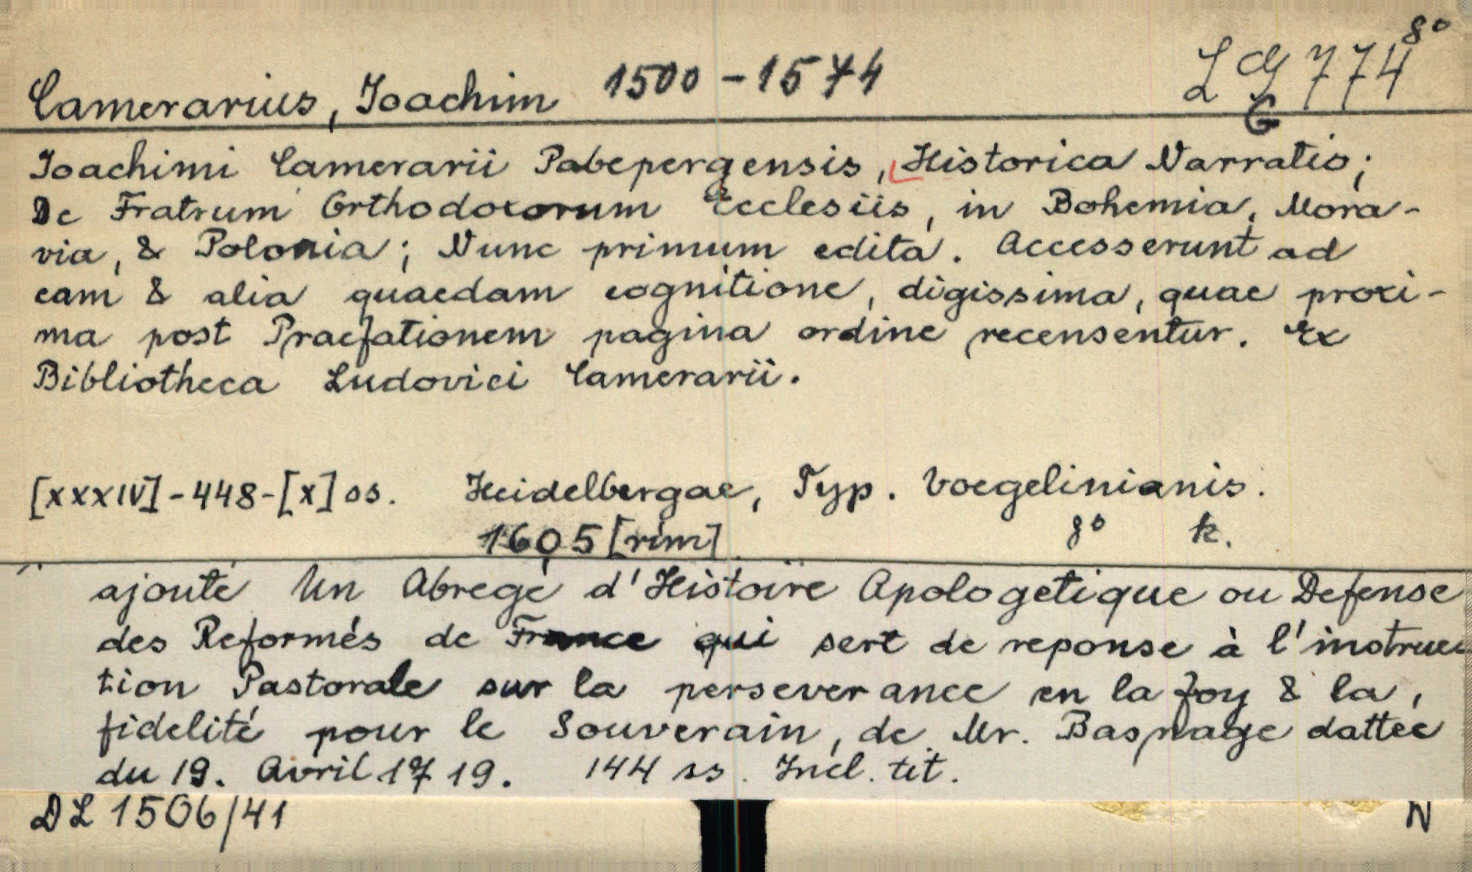 8°
Camerarius, Joachim 1500-1574 LG 774
G
Joachimi Camerarii Pabepergensis, Historica Narratio;
De Fratrum Orthodoxorum Ecclesiis, in Bohemia, Mora-
via, & Polonia; Nunc primum edita. Accesserunt ad
eam & alia quaedam cognitione, digissima, quae proxi-
ma post Praefationem pagina ordine recensentur. Ex
Bibliotheca Ludovici Camerarii.
[XXXIV]-448-[X] ss. Heidelbergae, Typ. Voegelinianis.
1605 [rim] 8° k.
ajouté Un Abregé d'Histoire Apologetique ou Defense
des Reformés de France qui sert de reponse à l'instruc
tion Pastorale sur la perseverance en la foy & la,
fidelité pour le Souverain, de Mr. Basnage dattee
du 19. Avril 1719. 144 ss. Incl. tit.
DL 1506/41 N